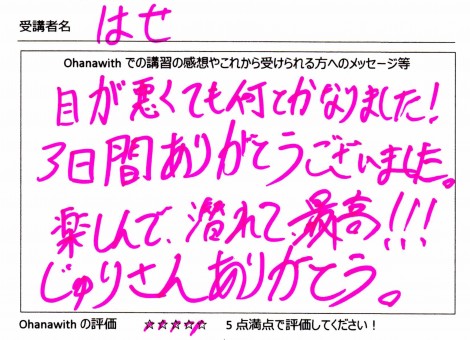 受講者名 はせ
Ohanawith での講習の感想やこれから受けられる方へのメッセージ等
目が悪くても何とかなりました!
3日間ありがとうございました。
楽しんで、潜れて、最高!!!
じゅりさんありがとう。
Ohanawith の評価 ☆☆☆☆☆ 5点満点で評価してください!